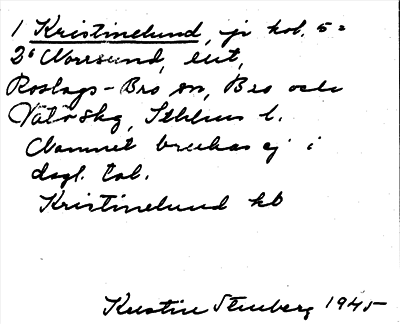 1 Kristinelund, jr kol. 5 =
2⁶ Norrsund, lht,
Roslags-Bro sn, Bro och
Vätö skg, Sthlms l.
Namnet brukas ej i
dagl. tal.
Kristinelund kb
Kerstin Stenberg 1945